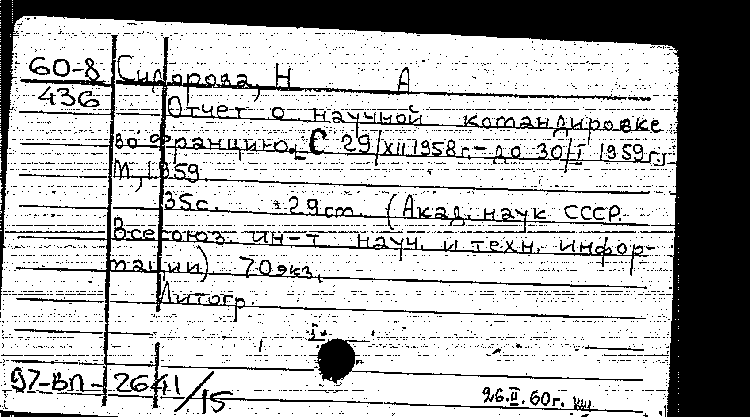 60-8 Сидорова, Н А
436 Отчет о научной командировке
во Францию. С 29/XII 1958г.- до 30/I 1959г.
М, 1959.
35с. 29см. (Акад. наук СССР.
Всесоюз. ин-т науч. и техн. инфор-
мации) 70экз.
Литогр.
97-ВП- 2641/15
26.II.60г.